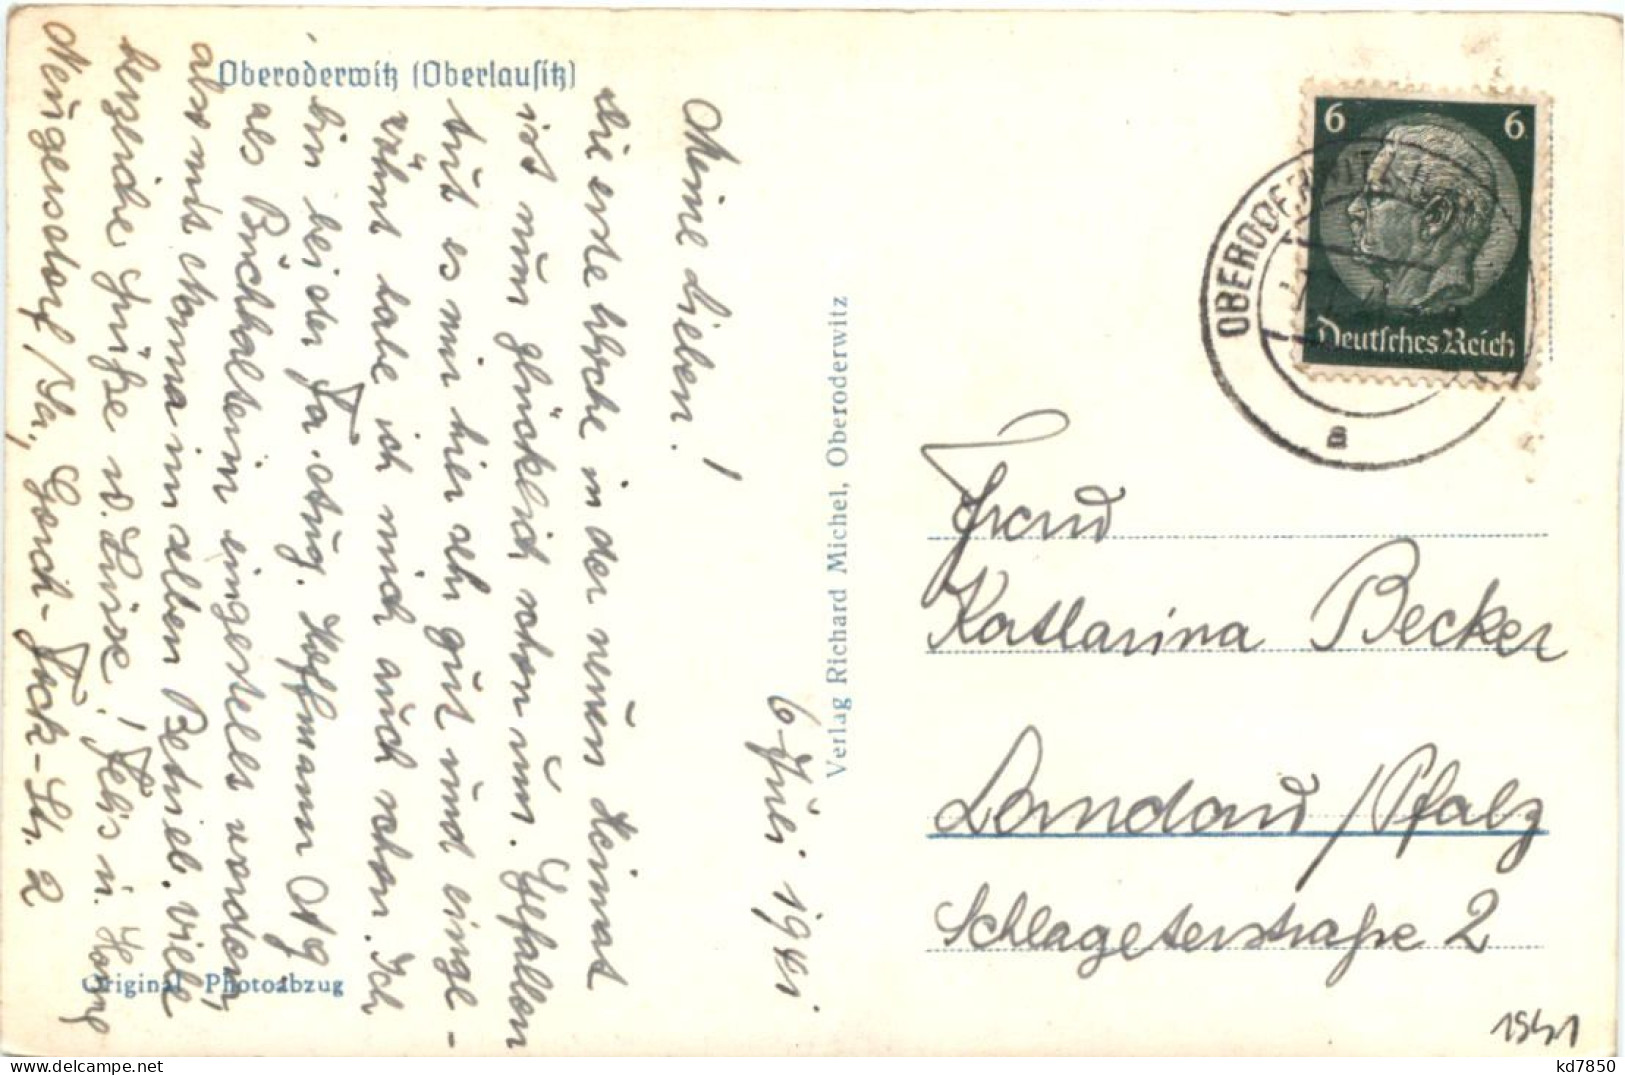 Oberoderwitz (Oberlausitz)
6 Juli 1941
Meine Lieben!
Die erste Woche in der neuen Heimat
ist nun glücklich schon um. Gefallen
tut es mir hier sehr gut und einge-
wöhnt habe ich mich auch schon. Ich
bin bei der Fa. Aug. Hoffmann AG
als Buchhalterin eingestellt worden,
also mit Mama im selben Betrieb. Viele
herzliche Grüße v. Luise!
Neugersdorf / Sa., Gorch-Fock-Str. 2
Original Photoabzug
Verlag Richard Michel, Oberoderwitz
6 6
Deutsches Reich
OBERODERWITZ
a
Frau
Katharina Becker
Landau / Pfalz
Schlageterstraße 2
1941
kd7850